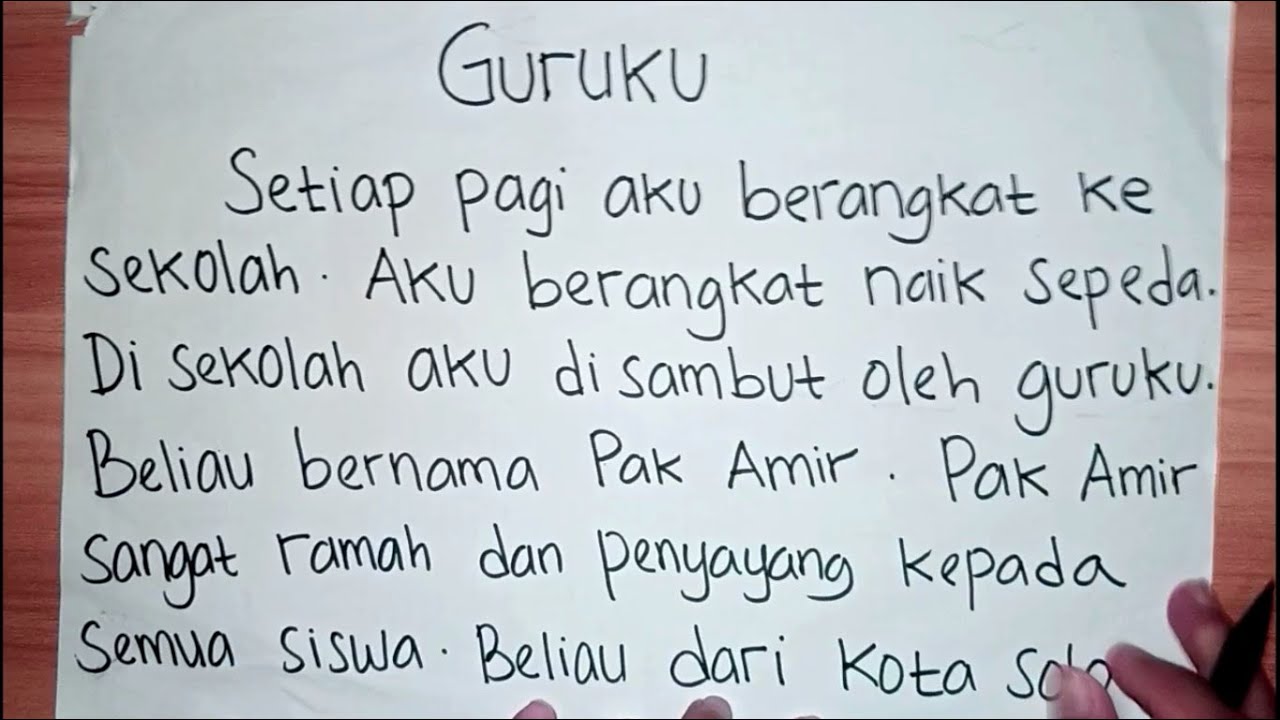 Guruku
Setiap pagi aku berangkat ke
sekolah. Aku berangkat naik sepeda.
Di sekolah aku di sambut oleh guruku.
Beliau bernama Pak Amir. Pak Amir
sangat ramah dan penyayang kepada
semua siswa. Beliau dari kota